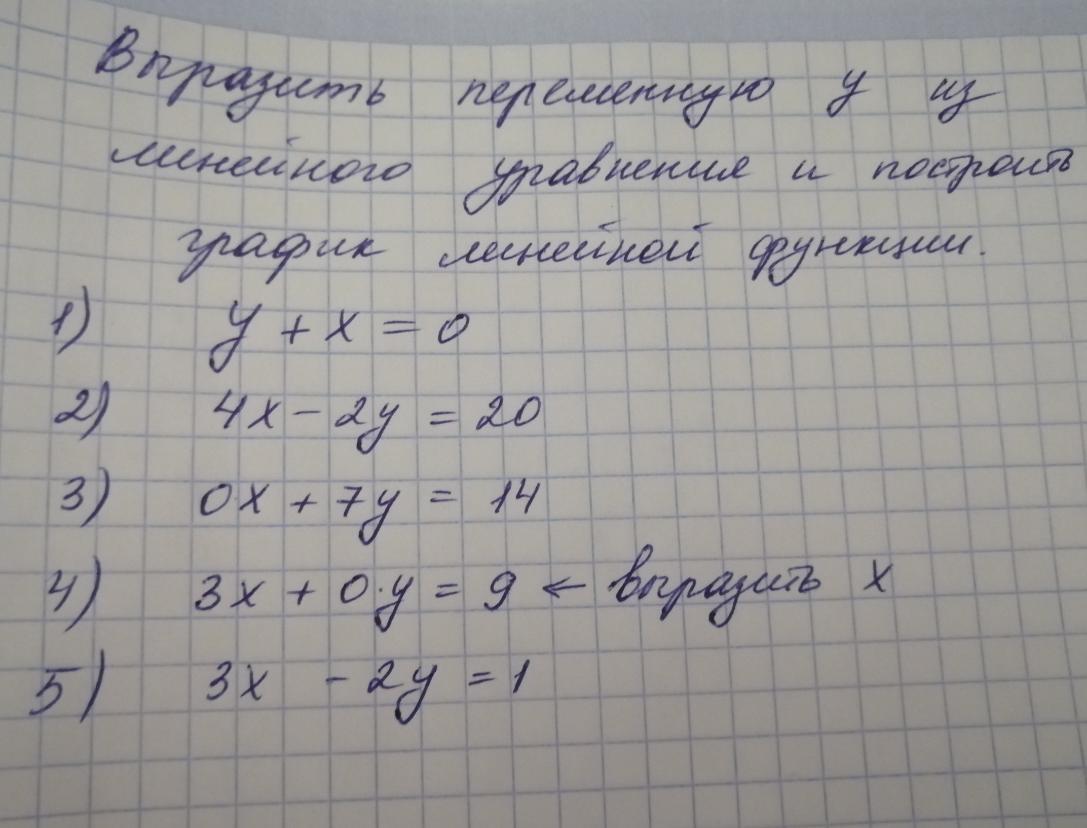 Выразить переменную y из
линейного уравнения и построить
график линейной функции.
1) y + x = 0
2) 4x - 2y = 20
3) 0x + 7y = 14
4) 3x + 0·y = 9 ← выразить x
5) 3x - 2y = 1